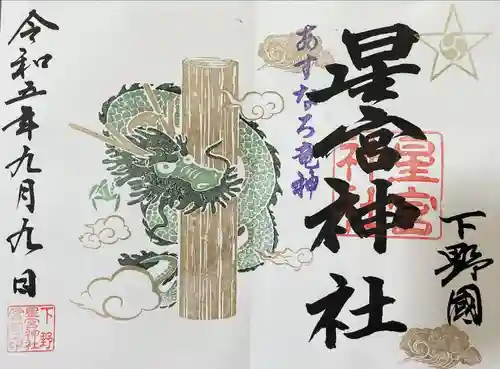 下野國
星宮神社
あすなろ竜神
令和五年九月九日
星宮
神社
下野
星宮神社